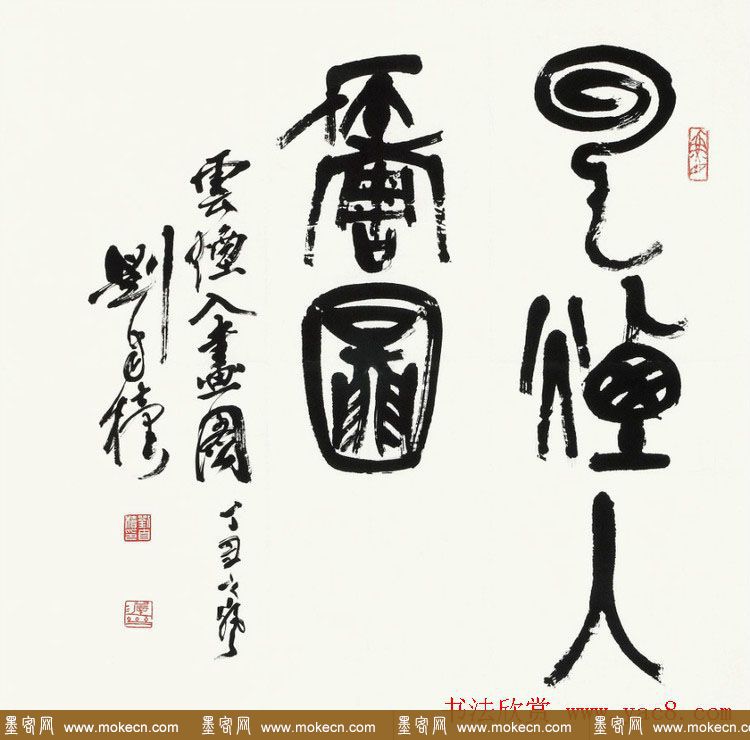 云煙入
畫圖
雲煙入畫圖 丁丑
劉自櫝
书法欣赏 www.yac8.com
墨客网 www.mokecn.com 墨客网 www.mokecn.com 墨客网 www.mokecn.com 墨客网 www.mokecn.com